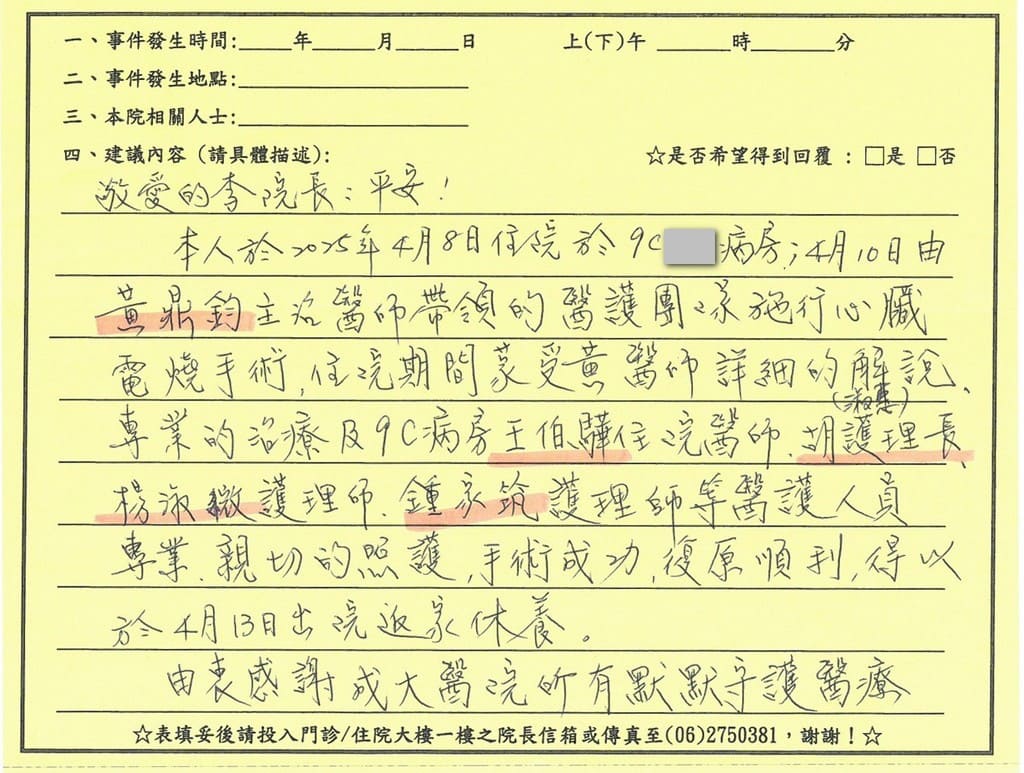 一、事件發生時間:_____年_____月_____日 上(下)午 _____時_____分
二、事件發生地點:_____
三、本院相關人士:_____
四、建議內容（請具體描述）: ☆是否希望得到回覆：□是 □否
敬愛的李院長：平安！
本人於2025年4月8日住院於9C 病房；4月10日由
黃鼎鈞主治醫師帶領的醫護團隊施行心臟
電燒手術，住院期間蒙受黃醫師詳細的解說、
(淑惠)
專業的治療及9C病房王伯驊住院醫師、胡護理長、
楊淑媺護理師、鍾家筑護理師等醫護人員
專業、親切的照護，手術成功，復原順利，得以
於4月13日出院返家休養。
由衷感謝成大醫院所有默默守護醫療
☆表填妥後請投入門診/住院大樓一樓之院長信箱或傳真至(06)2750381，謝謝！☆